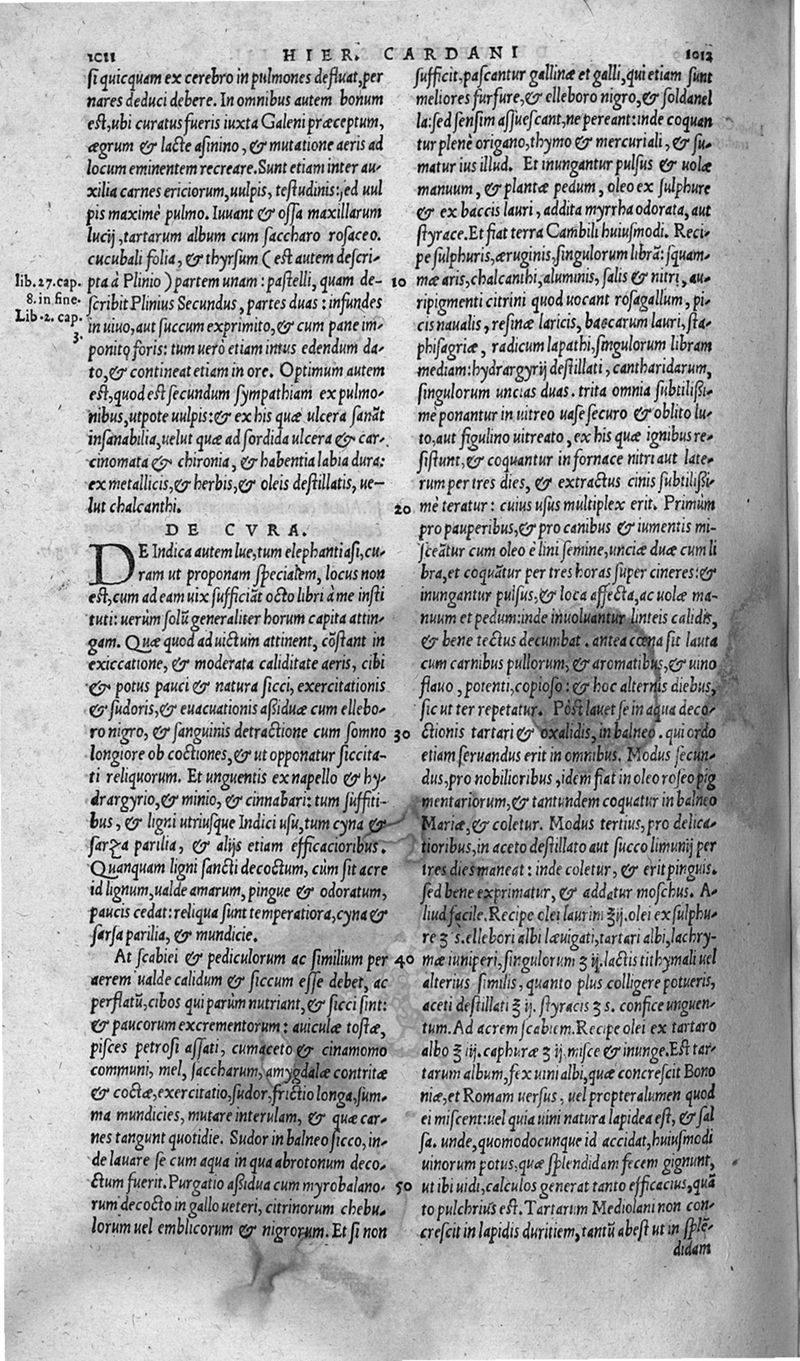 1011
HIER. CARDANI
1012
si quicquam ex cerebro in pulmones defluat, per
nares deduci debere. In omnibus autem bonum
est, ubi curatus fueris iuxta Galeni præceptum,
ægrum & lacte asinino, & mutatione aeris ad
locum eminentem recreare. Sunt etiam inter au-
xilia carnes ericiorum, uulpis, testudinis: sed uul
pis maximè pulmo. Iuuant & ossa maxillarum
lucij, tartarum album cum saccharo rosaceo.
cucubali folia, & thyrsum (est autem descri-
pta à Plinio) partem unam: pastelli, quam de-
scribit Plinius Secundus, partes duas: infundes
in uiuo, aut succum exprimito, & cum pane im-
ponito foris: tum uerò etiam intus edendum da-
to, & contineat etiam in ore. Optimum autem
est, quod est secundum sympathiam ex pulmo-
nibus, utpote uulpis: & ex his quæ ulcera sanãt
insanabilia, uelut quæ ad sordida ulcera & car-
cinomata & chironia, & habentia labia dura:
ex metallicis, & herbis, & oleis destillatis, ue-
lut chalcanthi.
lib. 27. cap.
8. in fine.
Lib. 2. cap.
3.
DE CVRA.
DE Indica autem lue, tum elephantiasi, cu-
ram ut proponam specialem, locus non
est, cum ad eam uix sufficiãt octo libri à me insti
tuti: uerùm solũ generaliter horum capita attin-
gam. Quæ quod ad uictum attinent, cõstant in
exiccatione, & moderata caliditate aeris, cibi
& potus pauci & natura sicci, exercitationis
& sudoris, & euacuationis aßiduæ cum ellebo-
ro nigro, & sanguinis detractione cum somno
longiore ob coctiones, & ut opponatur siccita-
ti reliquorum. Et unguentis ex napello & hy-
drargyrio, & minio, & cinnabari: tum suffiti-
bus, & ligni utriusque Indici usu, tum cyna &
sarza parilia, & alijs etiam efficacioribus.
Quanquam ligni sancti decoctum, cùm sit acre
id lignum, ualde amarum, pingue & odoratum,
paucis cedat: reliqua sunt temperatiora, cyna &
sarsa parilia, & mundicie.
At scabiei & pediculorum ac similium per
aerem ualde calidum & siccum esse debet, ac
perflatũ, cibos qui parùm nutriant, & sicci sint:
& paucorum excrementorum: auiculæ tostæ,
pisces petrosi assati, cum aceto & cinamomo
communi, mel, saccharum, amygdalæ contritæ
& coctæ, exercitatio, sudor, frictio longa, sum-
ma mundicies, mutare interulam, & quæ car-
nes tangunt quotidie. Sudor in balneo sicco, in-
de lauare se cum aqua in qua abrotonum deco-
ctum fuerit. Purgatio aßidua cum myrobalano-
rum decocto in gallo ueteri, citrinorum chebu-
lorum uel emblicorum & nigrorum. Et si non
sufficit, pascantur gallinæ et galli, qui etiam sunt
meliores furfure, & elleboro nigro, & soldanel
la: sed sensim assuescant, ne pereant: inde coquan
tur plenè origano, thymo & mercuriali, & su-
matur ius illud. Et inungantur pulsus & uolæ
manuum, & plantæ pedum, oleo ex sulphure
& ex baccis lauri, addita myrrha odorata, aut
styrace. Et fiat terra Cambili huiusmodi. Reci-
pe sulphuris, æruginis, singulorum librã: squam-
10 mæ æris, chalcanthi, aluminis, salis & nitri, au-
ripigmenti citrini quod uocant rosagallum, pi-
cis naualis, resinæ laricis, baccarum lauri, sta-
phisagriæ, radicum lapathi, singulorum libram
mediam: hydrargyrij destillati, cantharidarum,
singulorum uncias duas. trita omnia subtilißi-
mè ponantur in uitreo uase securo & oblito lu-
to, aut figulino uitreato, ex his quæ ignibus re-
sistunt, & coquantur in fornace nitri aut late-
rum per tres dies, & extractus cinis subtilißi-
20 mè teratur: cuius usus multiplex erit. Primùm
pro pauperibus, & pro canibus & iumentis mi-
sceãtur cum oleo è lini semine, unciæ duæ cum li
bra, et coquãtur per tres horas super cineres: &
inungantur pulsus, & loca affecta, ac uolæ ma-
nuum et pedum: inde inuoluantur linteis calidis,
& bene tectus decumbat. antea cœna sit lauta
cum carnibus pullorum, & aromatibus, & uino
flauo, potenti, copioso: & hoc alternis diebus,
sic ut ter repetatur. Pòst lauet se in aqua deco-
30 ctionis tartari & oxalidis, in balneo. qui ordo
etiam seruandus erit in omnibus. Modus secun-
dus, pro nobilioribus, idem fiat in oleo roseo pig
mentariorum, & tantundem coquatur in balneo
Mariæ, & coletur. Modus tertius, pro delica-
tioribus, in aceto destillato aut succo limunij per
tres dies maneat: inde coletur, & erit pinguis.
sed bene exprimatur, & addatur moschus. A-
liud facile. Recipe olei laurini ℥ij. olei ex sulphu-
re ʒ s. ellebori albi læuigati, tartari albi, lachry-
40 mæ iuniperi, singulorum ʒ ij. lactis tithymali uel
alterius similis, quanto plus colligere potueris,
aceti destillati ℥ ij. styracis ʒ s. confice unguen-
tum. Ad acrem scabiem. Recipe olei ex tartaro
albo ℥ iij. caphuræ ʒ ij. misce & inunge. Est tar-
tarum album, fex uini albi, quæ concrescit Bono
niæ, et Romam uersus, uel propter alumen quod
ei miscent: uel quia uini natura lapidea est, & sal
sa. unde, quomodocunque id accidat, huiusmodi
uinorum potus, quæ splendidam fecem gignunt,
50 ut ibi uidi, calculos generat tanto efficacius, quã
to pulchrius est. Tartarum Mediolani non con-
crescit in lapidis duritiem, tantũ abest ut in splẽ-
didam